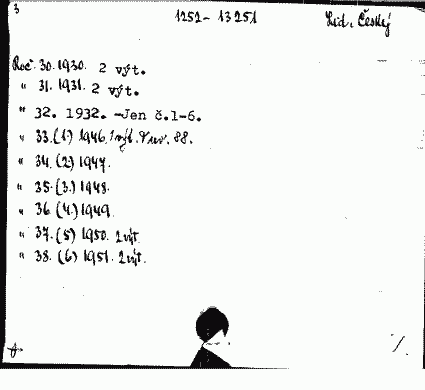 3
1252-13251
Lid, Český
Roč. 30. 1930. 2 výt.
" 31. 1931. 2 výt.
" 32. 1932. -Jen č.1-6.
" 33. (1) 1946. 1 výt. 88.
" 34. (2) 1947.
" 35. (3.) 1948.
" 36. (4.) 1949.
" 37. (5) 1950. 2 výt.
" 38. (6) 1951. 2 výt.